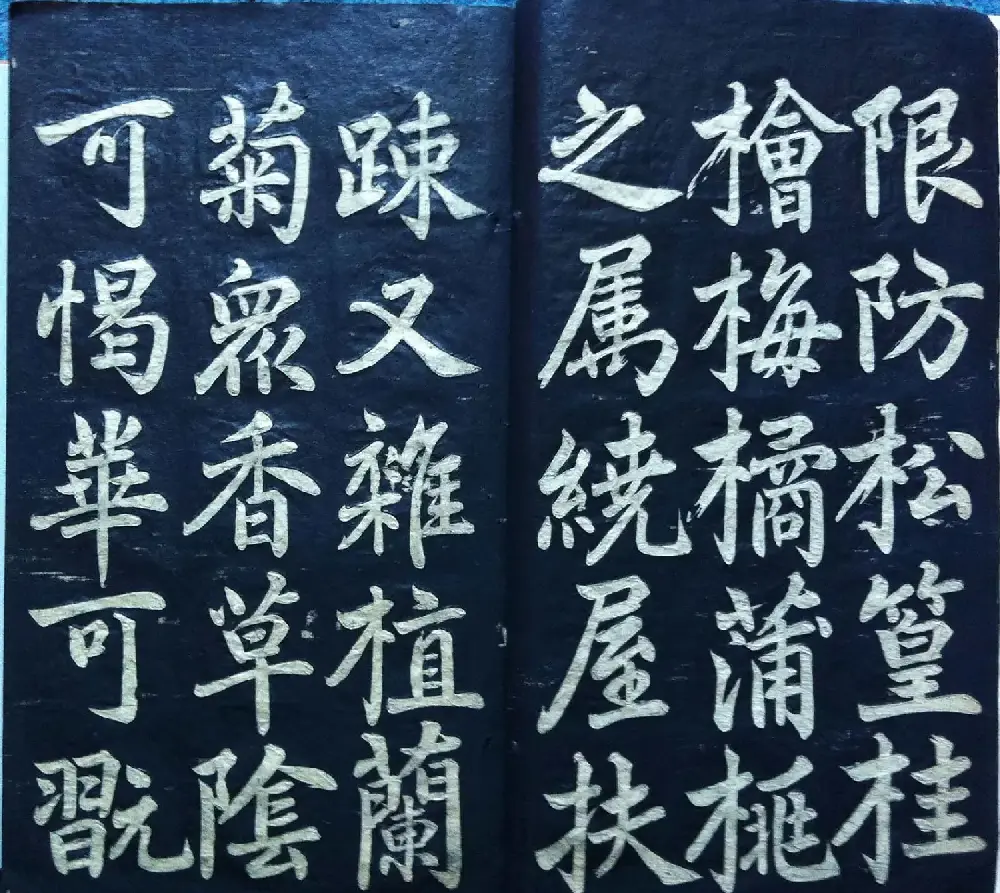 限防松篁桂
檜梅橘蒲桃
之属繞屋扶
踈又雜植蘭
菊衆香草陰
可愒華可翫